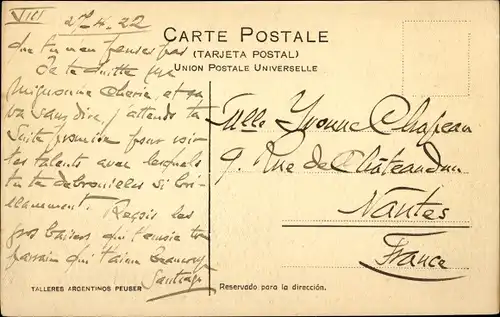 VIII
27.4.22
CARTE POSTALE
(TARJETA POSTAL)
UNION POSTALE UNIVERSELLE
que tu n'en penses pas
Je te quitte
Mignonne chérie, et
va sans dire, j'attends ta
suite pour voir
tes talents avec lesquels
tu te débrouilles si bril-
llamment. Reçois les
gros baisers qui t'envoie ton
parrain qui t'aime beaucoup
Santiago
Mlle Yvonne Chapeau
9. Rue de Châteaudun
Nantes
France
TALLERES ARGENTINOS PEUSER
Reservado para la dirección.